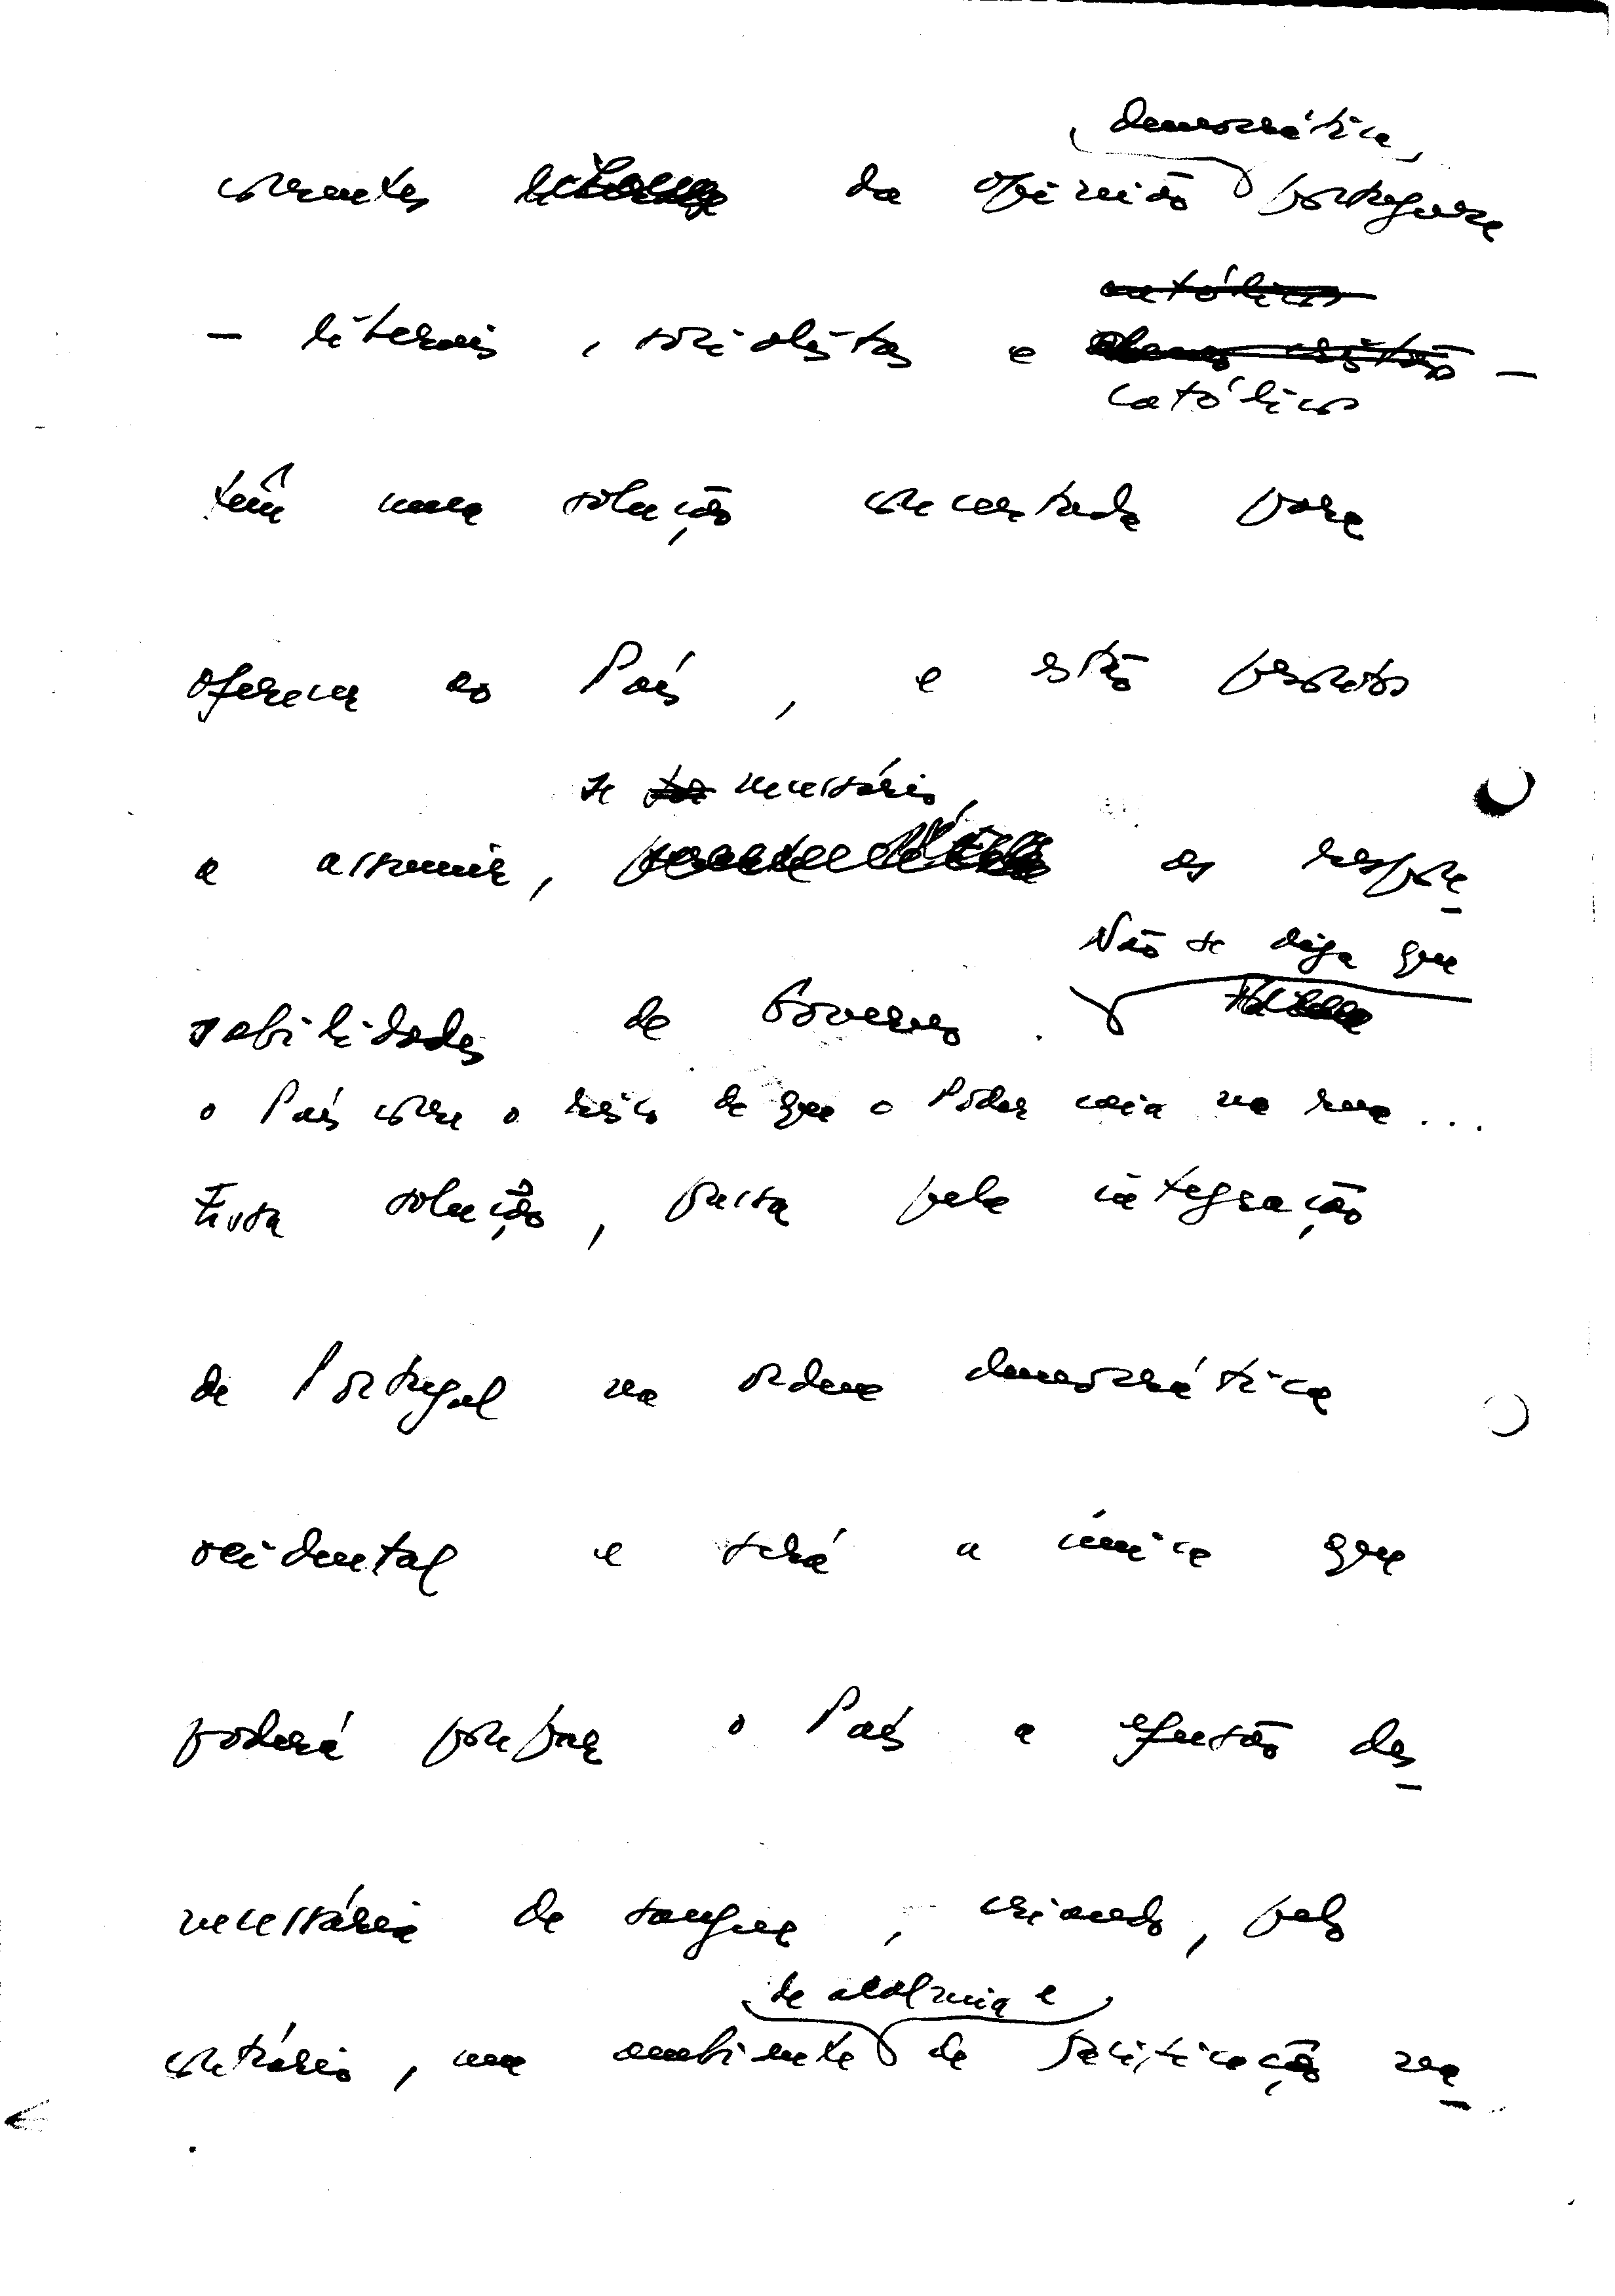 democrática,
correntes da opinião portuguesa
católicos
– liberais, socialistas e –
católicos
têm uma solução concertada para
oferecer ao País, e estão prontos
se necessário,
a assumir, as respon-
Não se diga que
sabilidades do Governo.
o País corre o risco de que o Poder caia na rua...
Essa solução, passa pela integração
de Portugal na ordem democrática
ocidental e será a única que
poderá poupar o País a efusão des-
necessária de sangue, criando, pelo
de acalmia e
contrário, um ambiente de pacificação na-